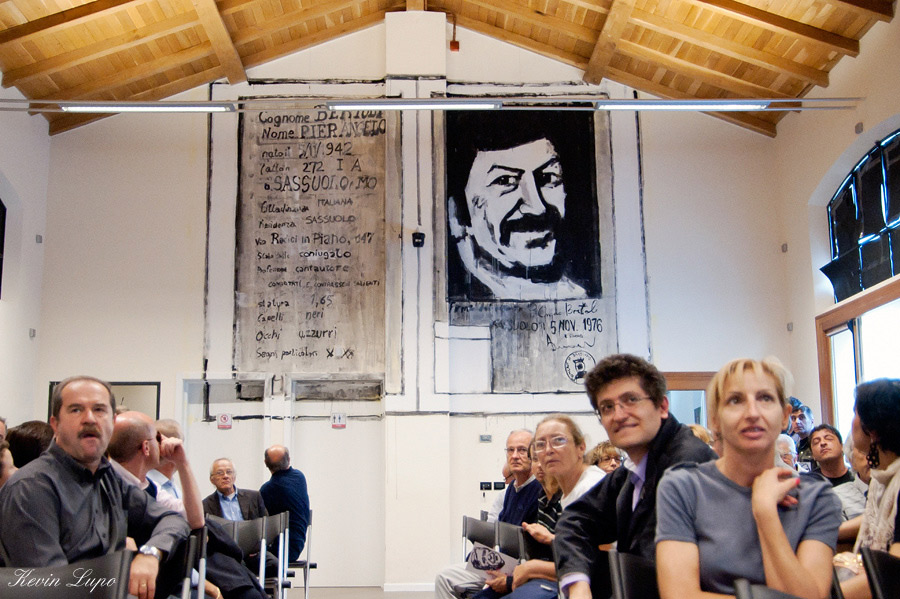 Cognome BERTOLI
Nome PIERANGELO
nato il 5/11/942
272 I A
a SASSUOLO, MO
Cittadinanza ITALIANA
Residenza SASSUOLO
Via Radici in Piano, 147
Stato civile coniugato
Professione cantautore
CONNOTATI E CONTRASSEGNI SALIENTI
statura 1,65
Capelli neri
Occhi azzurri
Segni particolari
SASSUOLO 5 NOV. 1976
Kevin Lupo